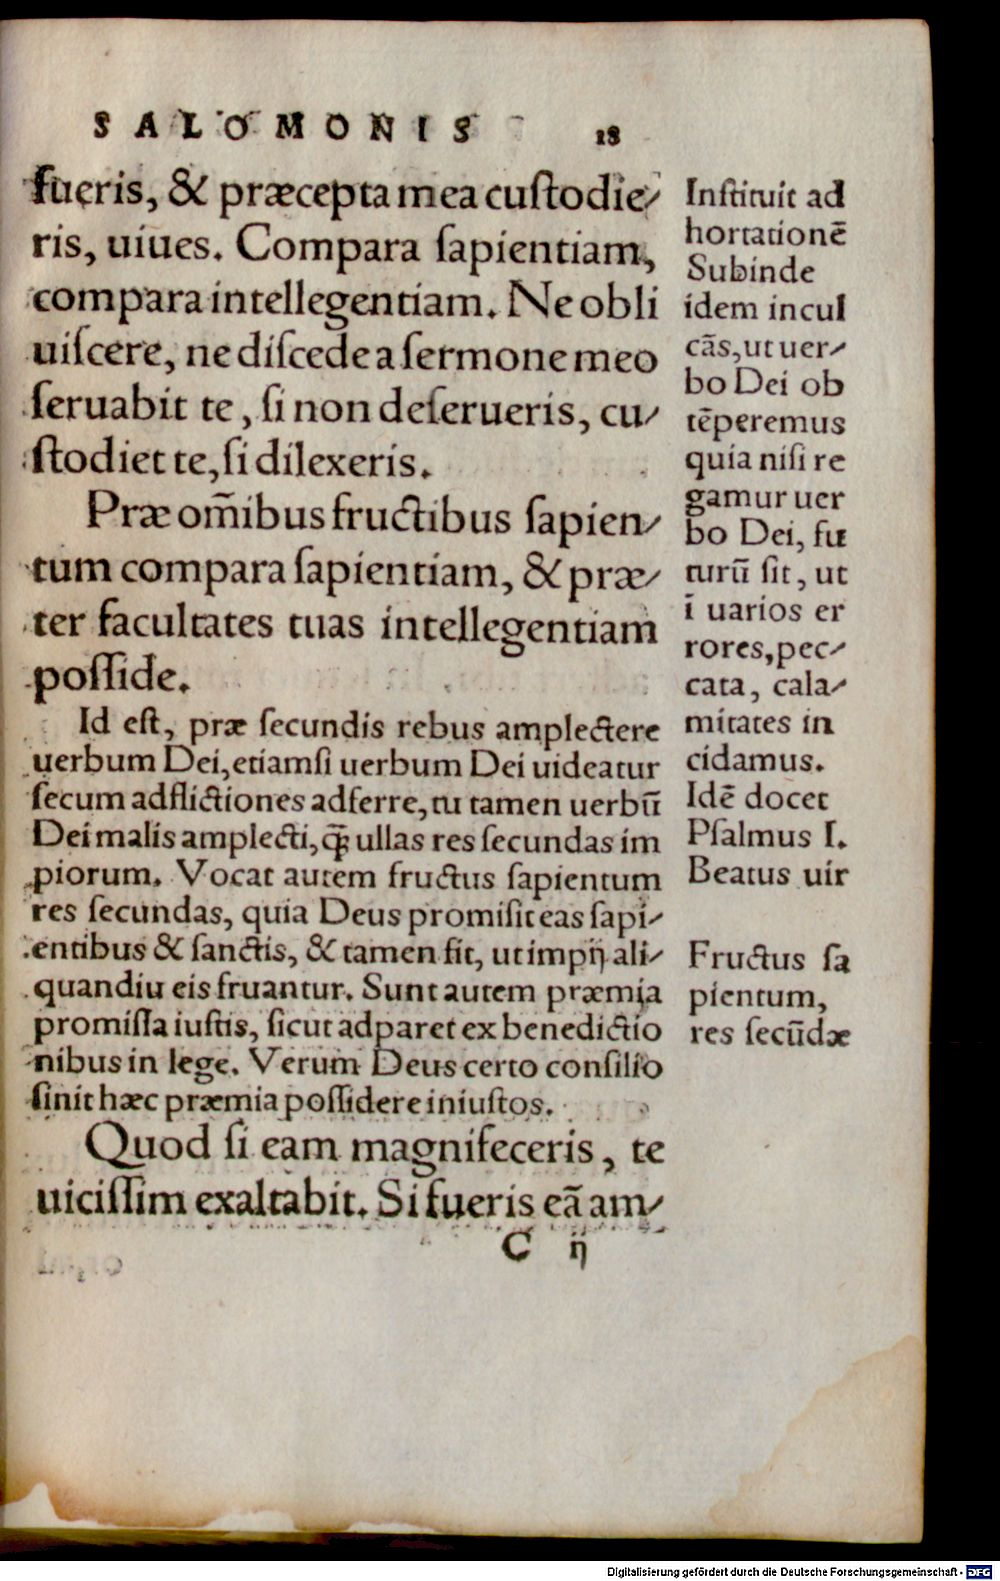 SALOMONIS 18
fueris, & præcepta mea custodie/
ris, uiues. Compara sapientiam,
compara intellegentiam. Ne obli
uiscere, ne discede a sermone meo
seruabit te, si non deserueris, cu/
stodiet te, si dilexeris.
Præ om̃ibus fructibus sapien/
tum compara sapientiam, & præ/
ter facultates tuas intellegentiam
posside.
Id est, præ secundis rebus amplectere
uerbum Dei, etiamsi uerbum Dei uideatur
secum adflictiones adferre, tu tamen uerbũ
Dei malis amplecti, q̃ȝ ullas res secundas im
piorum. Vocat autem fructus sapientum
res secundas, quia Deus promisit eas sapi/
entibus & sanctis, & tamen fit, ut impij ali/
quandiu eis fruantur. Sunt autem præmia
promissa iustis, sicut adparet ex benedictio
nibus in lege. Verum Deus certo consilio
sinit hæc præmia possidere iniustos.
Quod si eam magnifeceris, te
uicissim exaltabit. Si fueris eã am/
C ij
Instituit ad
hortationẽ
Subinde
idem incul
cãs, ut uer/
bo Dei ob
tẽperemus
quia nisi re
gamur uer
bo Dei, fu
turũ sit, ut
ĩ uarios er
rores, pec/
cata, cala/
mitates in
cidamus.
Idẽ docet
Psalmus I.
Beatus uir
Fructus sa
pientum,
res secũdæ
Digitalisierung gefördert durch die Deutsche Forschungsgemeinschaft - DFG